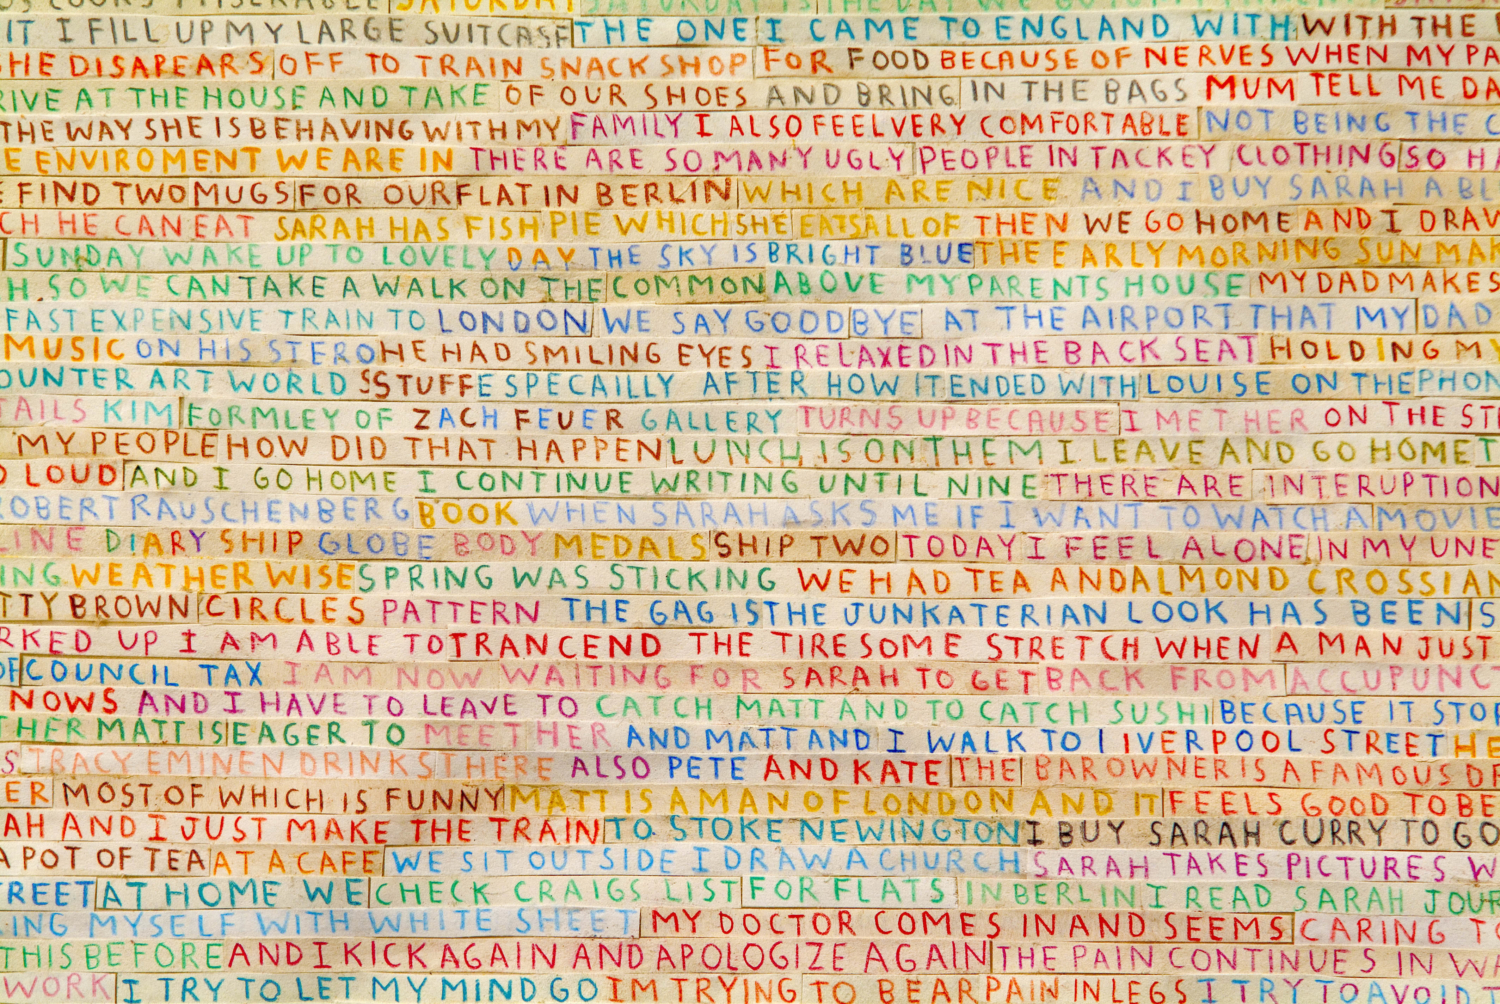 SATURDAY SATURDAY IS THE DAY WE GO
IT I FILL UP MY LARGE SUITCASE THE ONE I CAME TO ENGLAND WITH WITH THE
SHE DISAPEARS OFF TO TRAIN SNACK SHOP FOR FOOD BECAUSE OF NERVES WHEN MY PA
RIVE AT THE HOUSE AND TAKE OF OUR SHOES AND BRING IN THE BAGS MUM TELL ME DA
THE WAY SHE IS BEHAVING WITH MY FAMILY I ALSO FEEL VERY COMFORTABLE NOT BEING THE C
E ENVIROMENT WE ARE IN THERE ARE SO MANY UGLY PEOPLE IN TACKEY CLOTHING SO HA
E FIND TWO MUGS FOR OUR FLAT IN BERLIN WHICH ARE NICE AND I BUY SARAH A BL
CH HE CAN EAT SARAH HAS FISH PIE WHICH SHE EATS ALL OF THEN WE GO HOME AND I DRAW
SUNDAY WAKE UP TO LOVELY DAY THE SKY IS BRIGHT BLUE THE EARLY MORNING SUN MAK
H SO WE CAN TAKE A WALK ON THE COMMON ABOVE MY PARENTS HOUSE MY DAD MAKES
FAST EXPENSIVE TRAIN TO LONDON WE SAY GOODBYE AT THE AIRPORT THAT MY DAD
MUSIC ON HIS STERO HE HAD SMILING EYES I RELAXED IN THE BACK SEAT HOLDING MY
OUNTER ART WORLD SSTUFF ESPECAILLY AFTER HOW IT ENDED WITH LOUISE ON THE PHON
TAILS KIM FORMLEY OF ZACH FEUER GALLERY TURNS UP BECAUSE I MET HER ON THE STR
MY PEOPLE HOW DID THAT HAPPEN LUNCH IS ON THEM I LEAVE AND GO HOME T
O LOUD AND I GO HOME I CONTINUE WRITING UNTIL NINE THERE ARE INTERUPTION
ROBERT RAUSCHENBERG BOOK WHEN SARAH ASKS ME IF I WANT TO WATCH A MOVIE
LINE DIARY SHIP GLOBE BODY MEDALS SHIP TWO TODAY I FEEL ALONE IN MY UNE
ING WEATHER WISE SPRING WAS STICKING WE HAD TEA AND ALMOND CROSSIAN
TTY BROWN CIRCLES PATTERN THE GAG IS THE JUNKATERIAN LOOK HAS BEEN S
RKED UP I AM ABLE TO TRANCEND THE TIRESOME STRETCH WHEN A MAN JUST
OF COUNCIL TAX I AM NOW WAITING FOR SARAH TO GET BACK FROM ACCUPUNCT
NOWS AND I HAVE TO LEAVE TO CATCH MATT AND TO CATCH SUSHI BECAUSE IT STOP
THER MATT IS EAGER TO MEET HER AND MATT AND I WALK TO LIVERPOOL STREET HE
S TRACY EMINEN DRINKS THERE ALSO PETE AND KATE THE BAR OWNER IS A FAMOUS DR
ER MOST OF WHICH IS FUNNY MATT IS A MAN OF LONDON AND IT FEELS GOOD TO BE
AH AND I JUST MAKE THE TRAIN TO STOKE NEWINGTON I BUY SARAH CURRY TO GO
A POT OF TEA AT A CAFE WE SIT OUTSIDE I DRAW A CHURCH SARAH TAKES PICTURES W
TREET AT HOME WE CHECK CRAIGS LIST FOR FLATS IN BERLIN I READ SARAH JOUR
ING MYSELF WITH WHITE SHEET MY DOCTOR COMES IN AND SEEMS CARING TO
THIS BEFORE AND I KICK AGAIN AND APOLOGIZE AGAIN THE PAIN CONTINUES IN WA
WORK I TRY TO LET MY MIND GO IM TRYING TO BEAR PAIN IN LEGS I TRY TO AVOID T